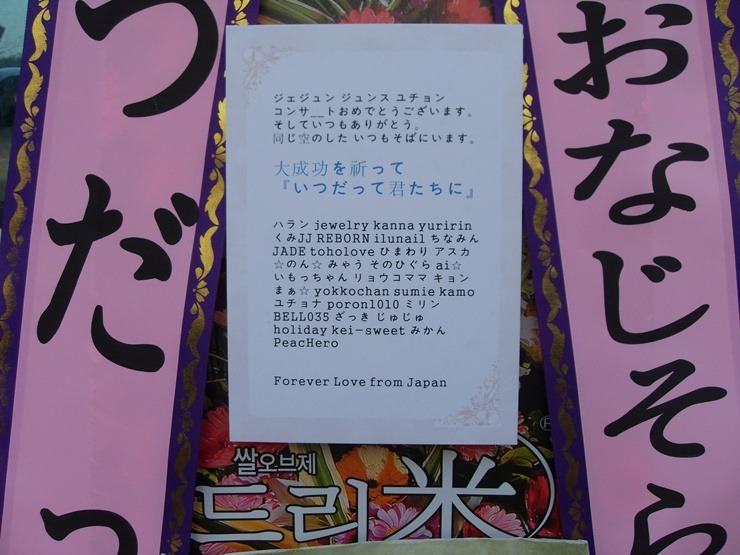 つだっ
ジェジュン ジュンス ユチョン
コンサ__トおめでとうございます。
そしていつもありがとう。
同じ空のした いつもそばにいます。
大成功を祈って
『いつだって君たちに』
ハラン jewelry kanna yuririn
くみJJ REBORN ilunail ちなみん
JADE toholove ひまわり アスカ
☆のん☆ みゃう そのひぐら ai☆
いもっちゃん リョウコママ キョン
まぁ☆ yokkochan sumie kamo
ユチョナ poron1010 ミリン
BELL035 ざっき じゅじゅ
holiday kei-sweet みかん
PeacHero
Forever Love from Japan
おなじそら
쌀오브제
드리米